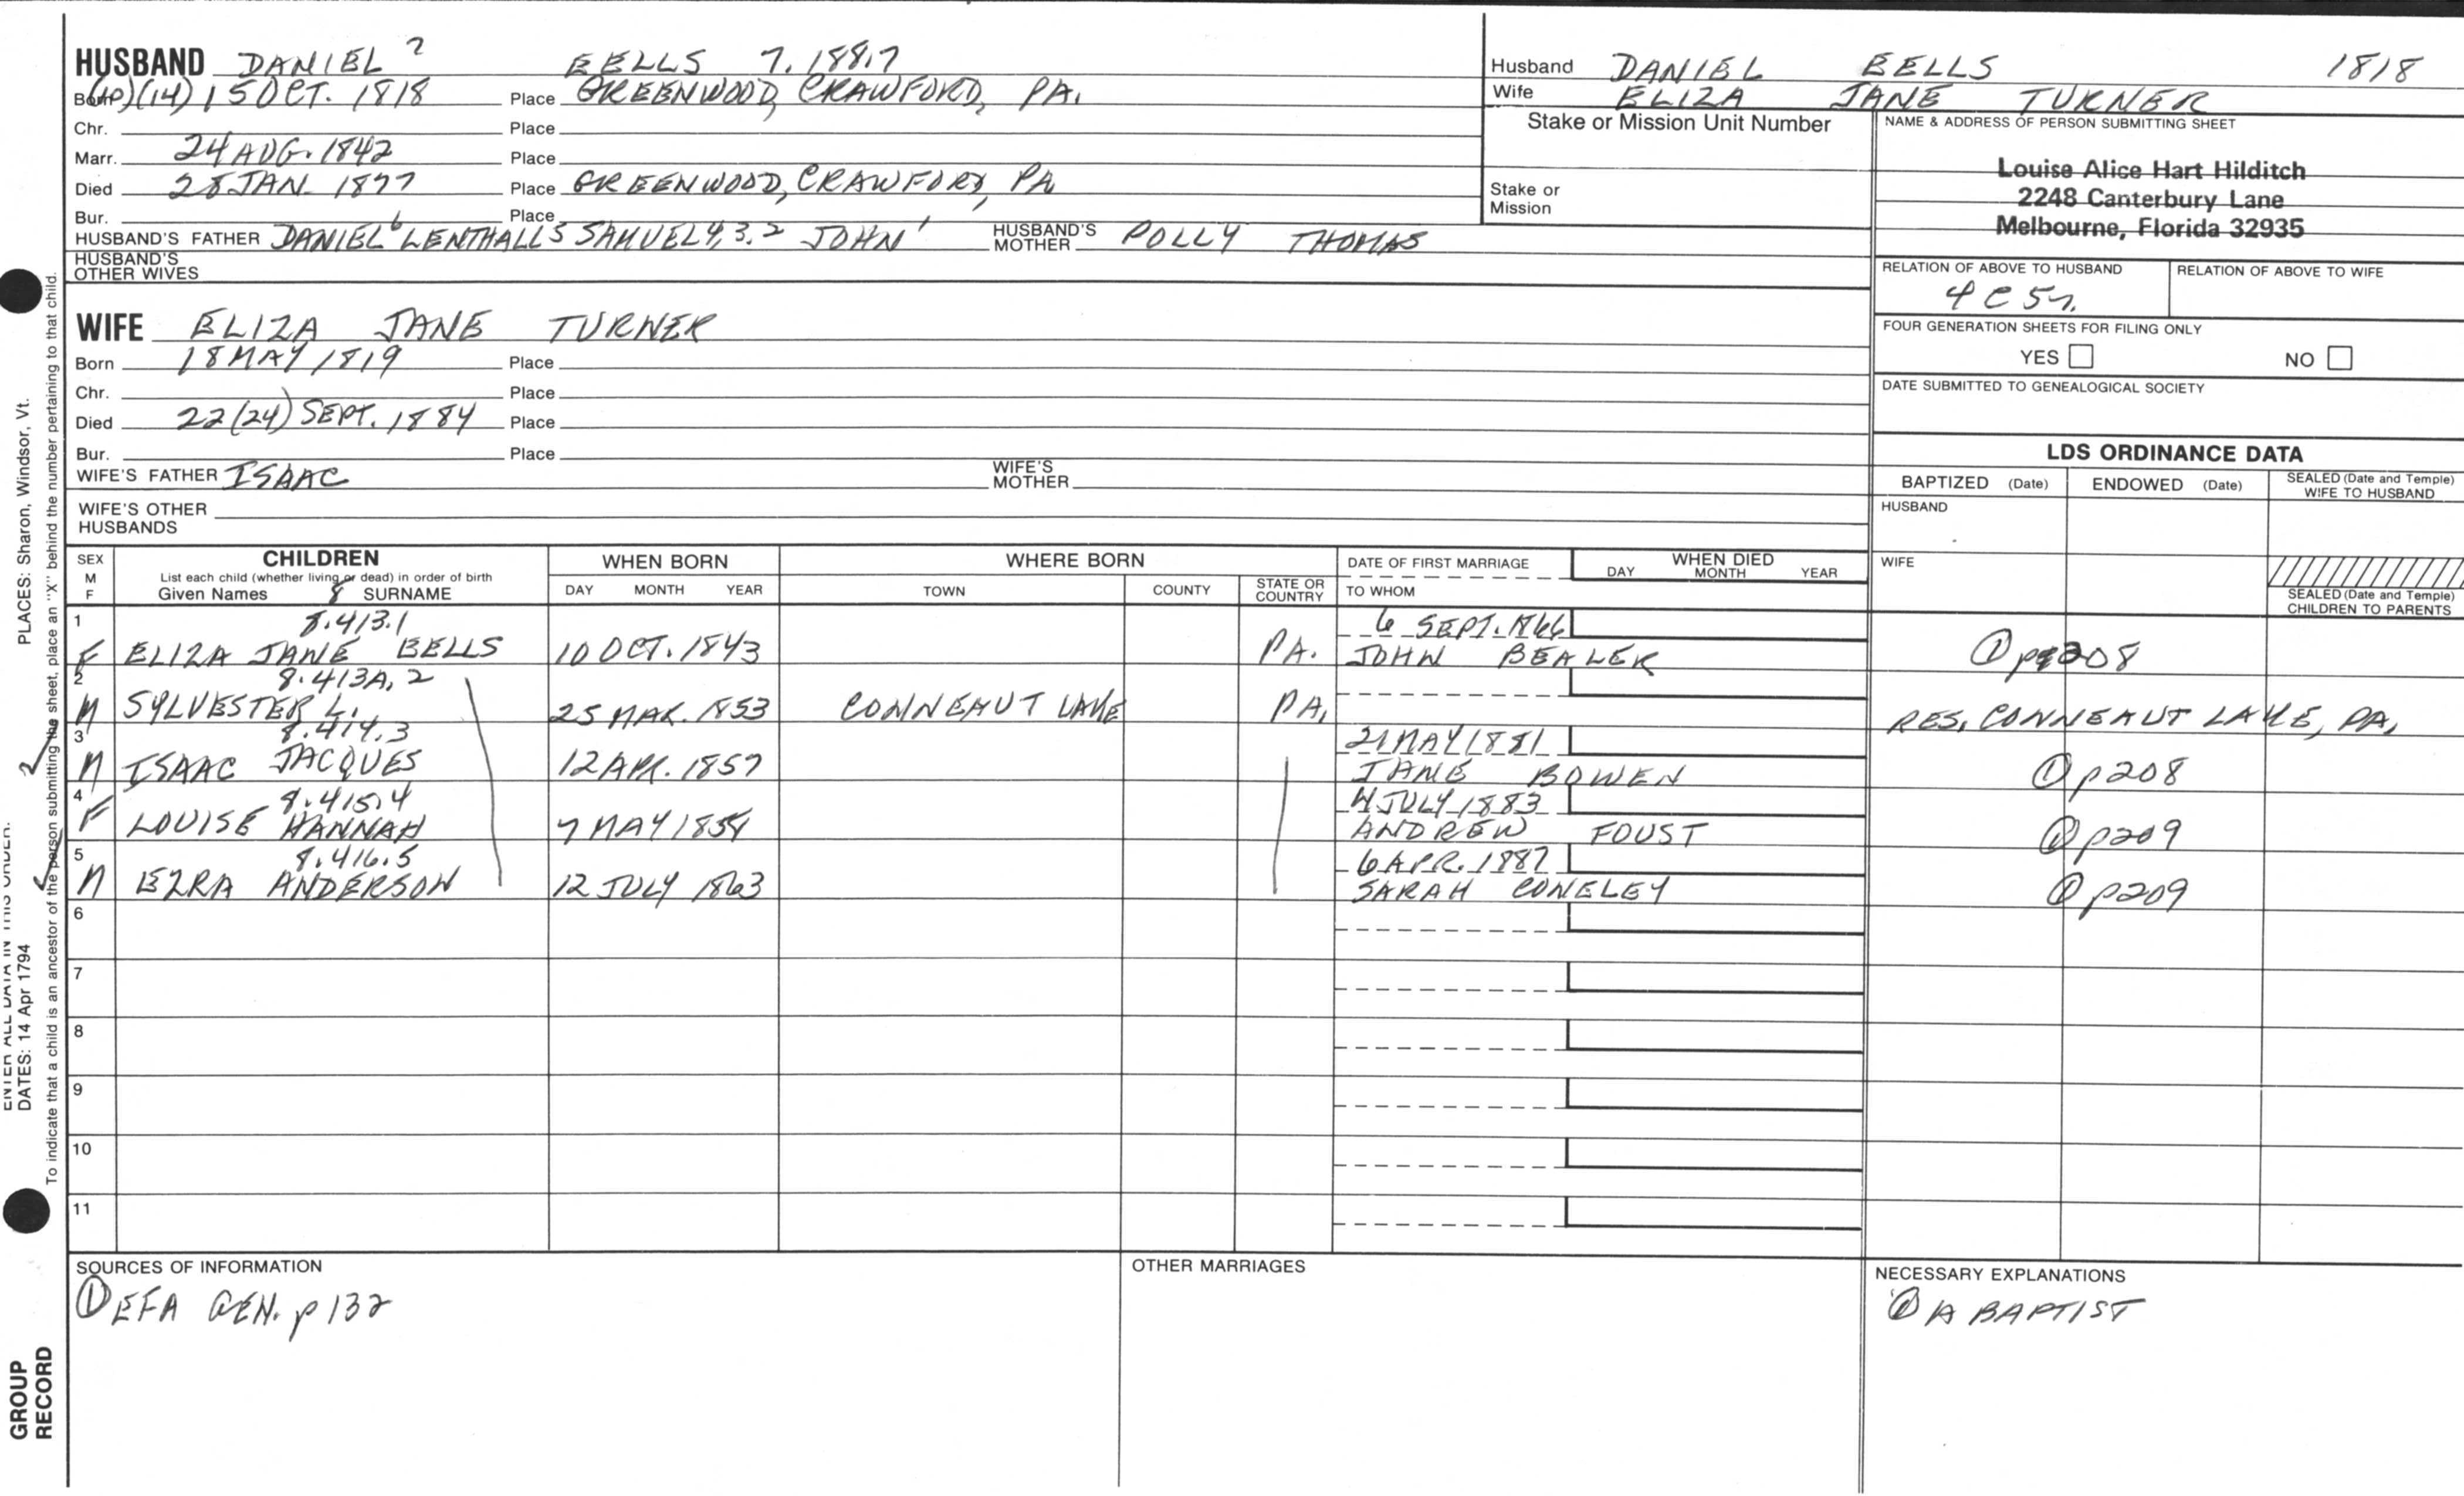 HUSBAND DANIEL 7 EELLS 7.188.7
Born (10)(14) 15 OCT. 1818 Place GREENWOOD, CRAWFORD, PA.
Chr. Place
Marr. 24 AUG. 1842 Place
Died 28 JAN. 1877 Place GREENWOOD, CRAWFORD, PA
Bur. Place
HUSBAND'S FATHER DANIEL 6 LENTHALL 5 SAMUEL 4,3,2 JOHN 1 HUSBAND'S MOTHER POLLY THOMAS
HUSBAND'S OTHER WIVES
WIFE ELIZA JANE TURNER
Born 18 MAY 1819 Place
Chr. Place
Died 22(24) SEPT. 1884 Place
Bur. Place
WIFE'S FATHER ISAAC WIFE'S MOTHER
WIFE'S OTHER HUSBANDS
Husband DANIEL EELLS 1818
Wife ELIZA JANE TURNER
Stake or Mission Unit Number
Stake or Mission
NAME & ADDRESS OF PERSON SUBMITTING SHEET
Louise Alice Hart Hilditch
2248 Canterbury Lane
Melbourne, Florida 32935
RELATION OF ABOVE TO HUSBAND RELATION OF ABOVE TO WIFE
4C5r.
FOUR GENERATION SHEETS FOR FILING ONLY
YES NO
DATE SUBMITTED TO GENEALOGICAL SOCIETY
LDS ORDINANCE DATA
BAPTIZED (Date) ENDOWED (Date) SEALED (Date and Temple) WIFE TO HUSBAND
HUSBAND
WIFE
SEALED (Date and Temple) CHILDREN TO PARENTS
SEX M F CHILDREN WHEN BORN WHERE BORN DATE OF FIRST MARRIAGE WHEN DIED
List each child (whether living or dead) in order of birth
Given Names 8 SURNAME DAY MONTH YEAR TOWN COUNTY STATE OR COUNTRY TO WHOM DAY MONTH YEAR
1 8.413.1 6 SEPT. 1866
F ELIZA JANE EELLS 10 OCT. 1843 PA. JOHN BEALER ① p208
2 8.413A.2
M SYLVESTER L. 25 MAR. 1853 CONNEAUT LAKE PA. RES. CONNEAUT LAKE, PA.
3 8.414.3 21 MAY 1881
M ISAAC JACQUES 12 APR. 1857 JANE BOWEN ① p208
4 8.415.4 4 JULY 1883
F LOUISE HANNAH 7 MAY ANDREW FOUST ① p209
5 8.416.5 6 APR. 1887
M EZRA ANDERSON 12 JULY 1863 SARAH CONELEY ① p209
6
7
8
9
10
11
SOURCES OF INFORMATION OTHER MARRIAGES NECESSARY EXPLANATIONS
① EFA GEN. p 132 ① A BAPTIST
PLACES: Sharon, Windsor, Vt.
ENTER ALL DATA IN THIS ORDER:
DATES: 14 Apr 1794
To indicate that a child is an ancestor of the person submitting the sheet, place an "X" behind the number pertaining to that child.
GROUP
RECORD